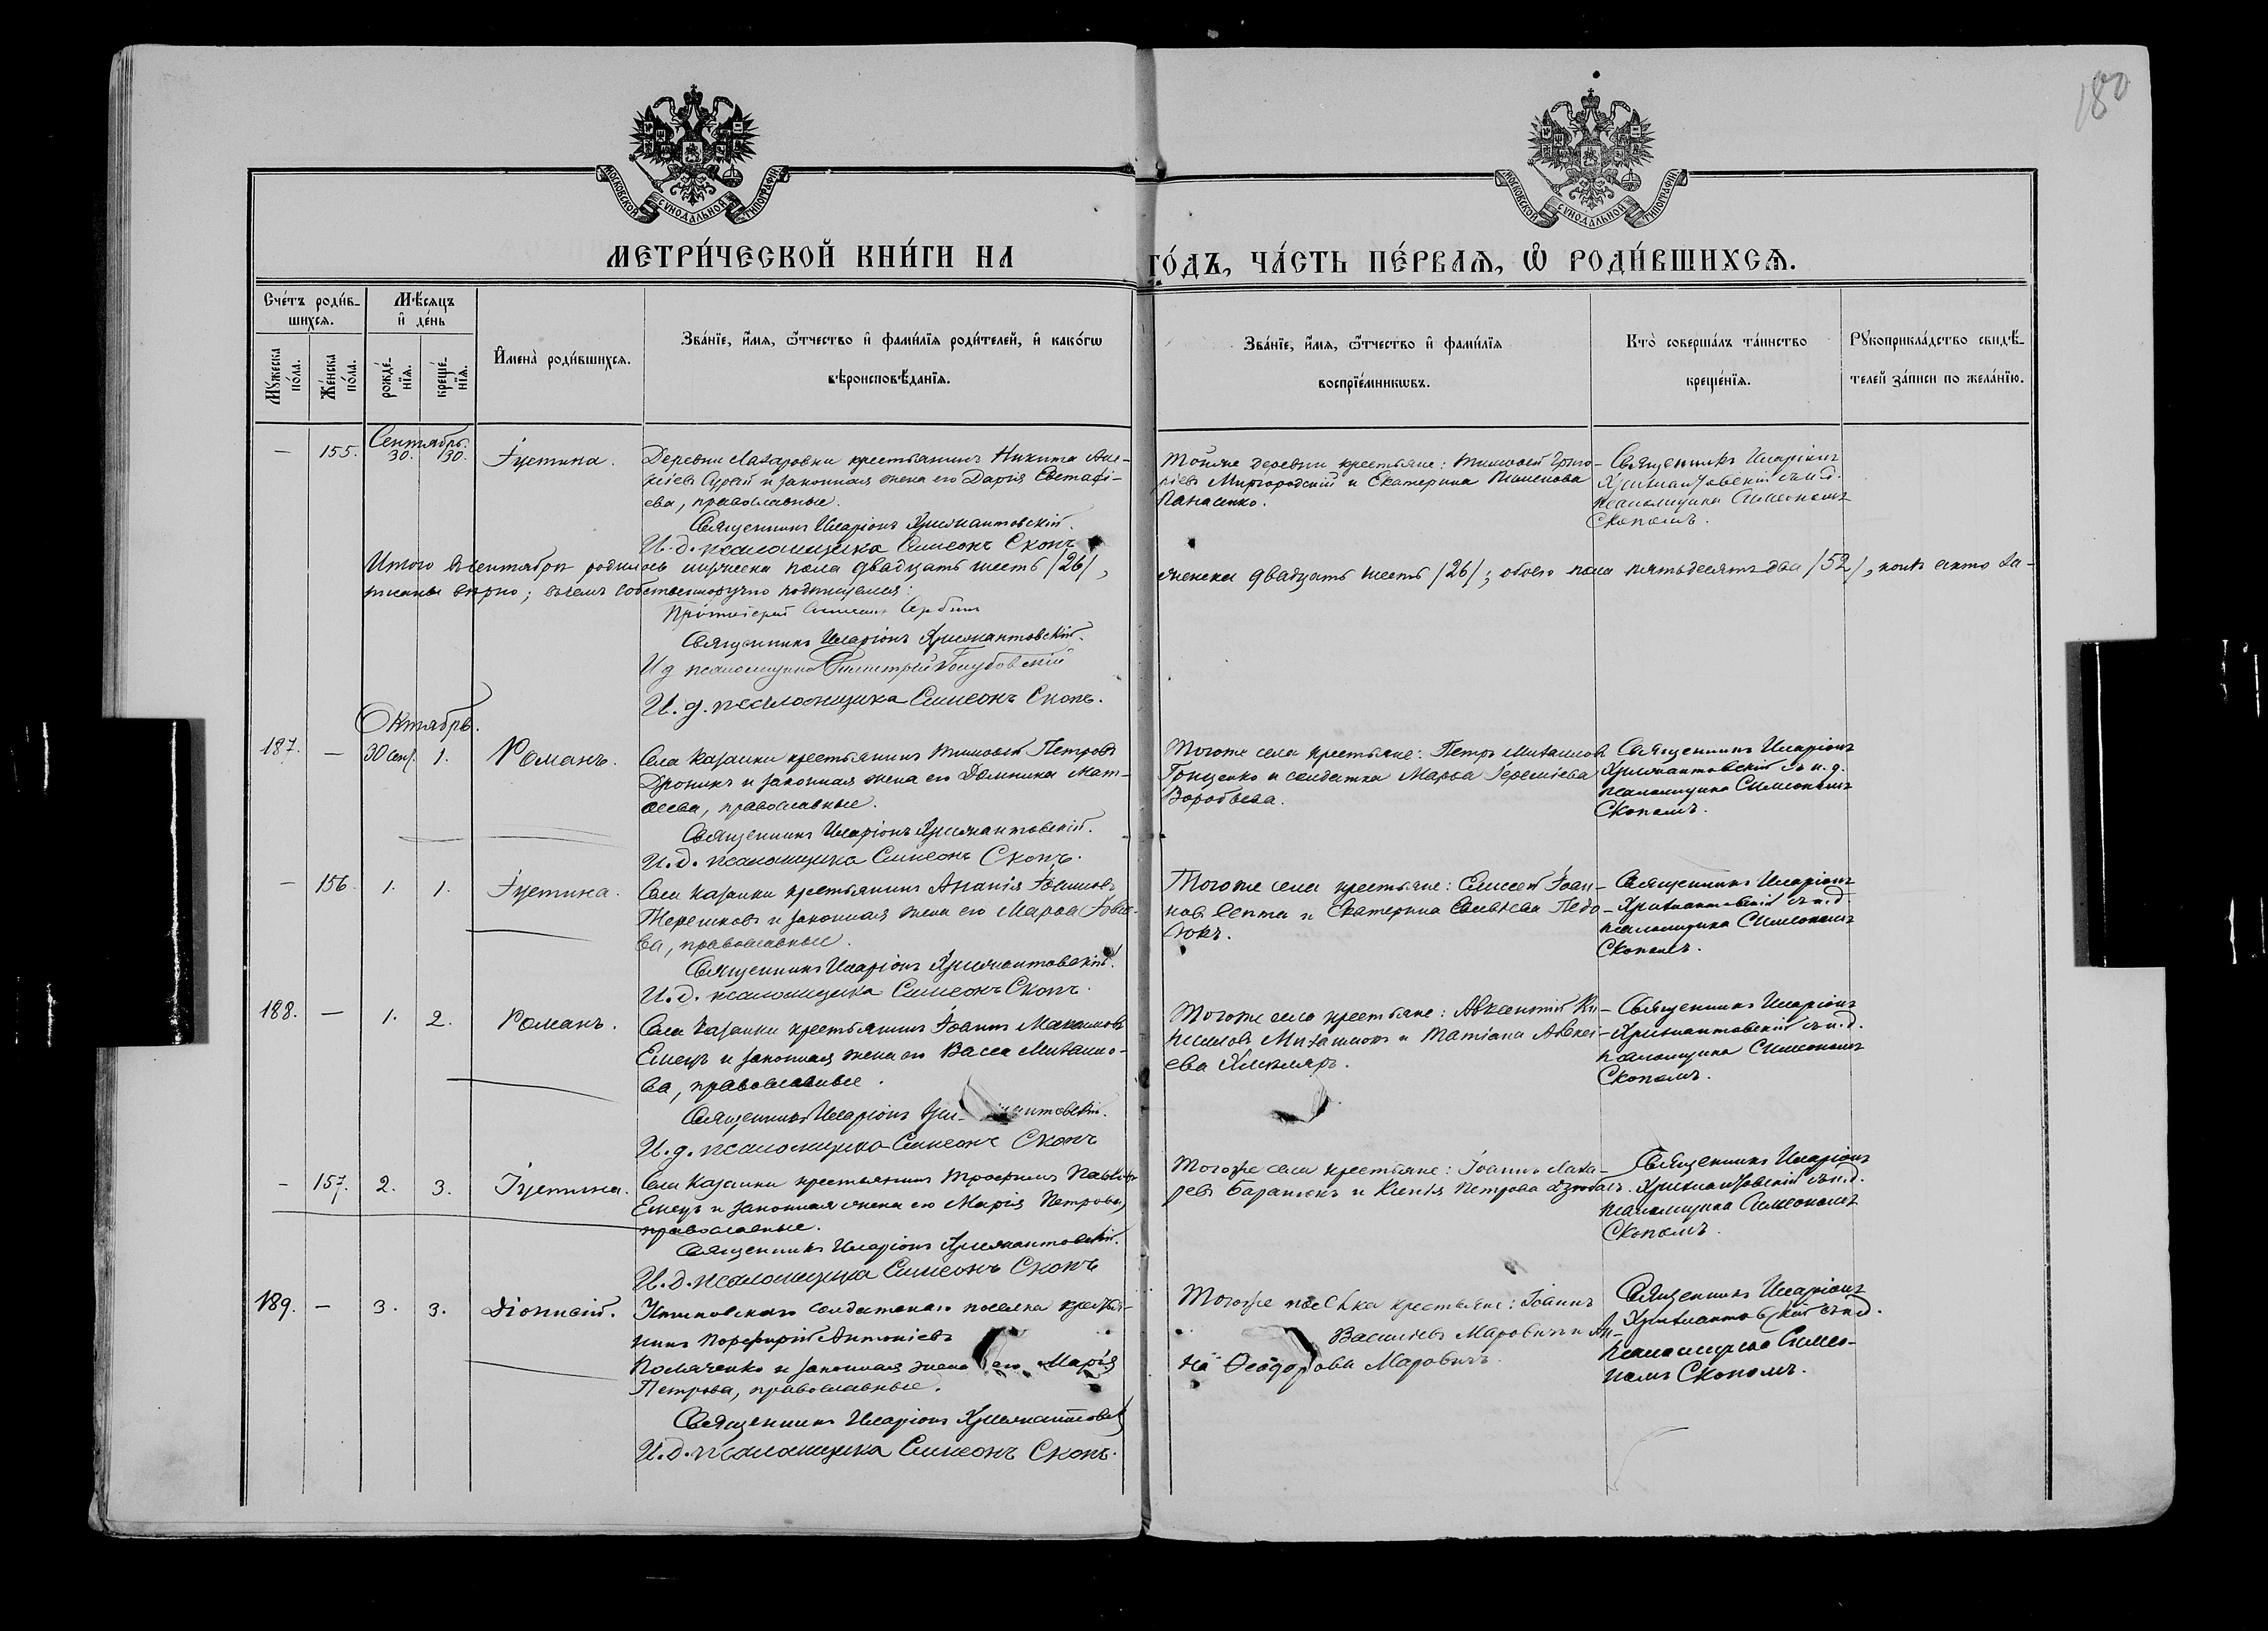 180
МОСКОВСКОЙ СѴНОДАЛЬНОЙ ТИПОГРАФІИ
МОСКОВСКОЙ СѴНОДАЛЬНОЙ ТИПОГРАФІИ
МЕТРИ́ЧЕСКОЙ КНИ́ГИ НА
ГО́ДЪ, ЧА́СТЬ ПЕ́РВАѦ, Ѽ РОДИ́ВШИХСѦ.
Сче́тъ роди́в-
шихсѧ.
Мѣ́сяцъ
и҆ де́нь
Му́жеска
по́ла.
Же́нска
по́ла.
рожде́-
нїѧ.
креще́-
нїѧ.
И҆мена̀ роди́вшихсѧ.
Зва́нїе, и҆́мѧ, ѻ҆́тчество и҆ фами́лїѧ роди́телей, и҆ како́гѡ
вѣроисповѣ́данїѧ.
Зва́нїе, и҆́мѧ, ѻ҆́тчество и҆ фами́лїѧ
воспрїе́мникѡвъ.
Кто̀ соверша́лъ та́инство
креще́нїѧ.
Рꙋкоприкла́дство свидѣ́-
телей за́писи по жела́нїю.
Сентябрь.
— 155. 30. 30. Іустина.
Деревни Лазаровки крестьянинъ Никита Але-
ксіевъ и законная жена его Дарія Евстафі-
ева, православные.
Священникъ Иларіонъ Хрисмантовскій.
И. д. псаломщика Симеонъ Скопъ
Тойже деревни крестьяне: Тимоѳей Григо-
ріевъ Миргородскій и Екатерина
Панасенко.
Священникъ Иларіонъ
Хрисмантовскій съ и. д.
псаломщика Симеономъ
Скопомъ.
Итого въ сентябрѣ родилось мужеска пола двадцать шесть /26/,
женска двадцать шесть /26/; обоего пола пятьдесятъ два /52/, что за-
писаны вѣрно; въ чемъ собственноручно подписуемся
Протоіерей Сербинъ
Священникъ Иларіонъ Хрисмантовскій.
И д псаломщика Голубовскій
И. д. псаломщика Симеонъ Скопъ.
Октябрь.
187. — 30 Сен. 1. Романъ.
Села Казанки крестьянинъ Тимоѳей Петровъ
Дроникъ и законная жена его Домника Мат-
ѳеева, православные.
Священникъ Иларіонъ Хрисмантовскій.
И. д. псаломщика Симеонъ Скопъ.
Тогоже села крестьяне: Петръ Михаиловъ
Гонценко и солдатка Марѳа Іереміева
Воробьева.
Священникъ Иларіонъ
Хрисмантовскій съ и. д.
псаломщика Симеономъ
Скопомъ.
— 156. 1. 1. Іустина.
Села Казанки крестьянинъ Ананія
Терешковъ и законная жена его Марѳа
ва, православные.
Священникъ Иларіонъ Хрисмантовскій.
И. д. псаломщика Симеонъ Скопъ.
Тогоже села крестьяне: Елисей Іоан-
новъ Септа и Екатерина Педо-
сюкъ.
Священникъ Иларіонъ
Хрисмантовскій съ и. д.
псаломщика Симеономъ
Скопомъ.
188. — 1. 2. Романъ.
Села Казанки крестьянинъ Іоаннъ Максимовъ
Емецъ и законная жена его Васса Михаило-
ва, православные.
Священникъ Иларіонъ
И. д. псаломщика Симеонъ Скопъ
Тогоже села крестьяне: Авксентій Ки-
рилловъ и Татіана Алексі-
ева
Священникъ Иларіонъ
Хрисмантовскій съ и. д.
псаломщика Симеономъ
Скопомъ.
— 157. 2. 3. Іустина.
Села Казанки крестьянинъ Трофимъ Павловъ
Емецъ и законная жена его Марія Петрова,
православные.
Священникъ Иларіонъ Хрисмантовскій.
И. д. псаломщика Симеонъ Скопъ
Тогоже села крестьяне: Іоаннъ Лаза-
ревъ Баранюкъ и Ксенія Петрова
Священникъ Иларіонъ
Хрисмантовскій съ и. д.
псаломщика Симеономъ
Скопомъ.
189. — 3. 3. Діонисій.
солдатскаго поселка крестья-
нинъ Порфирій Антоніевъ
и законная жена его Марія
Петрова, православные.
Священникъ Иларіонъ
И. д. псаломщика Симеонъ Скопъ.
Тогоже поселка крестьяне: Іоаннъ
Васильевъ Маровичъ и Ан-
на Ѳеодорова Маровичъ.
Священникъ Иларіонъ
Хрисмантовскій съ и. д.
псаломщика Симео-
номъ Скопомъ.